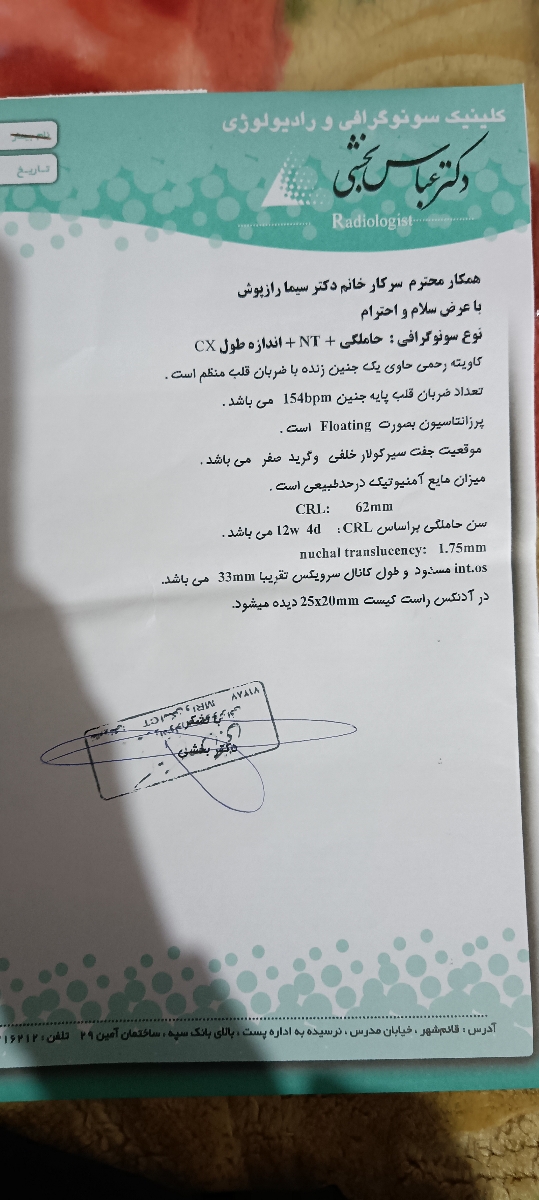 کلینیک سونوگرافی و رادیولوژی
دکتر عباس بخشی
Radiologist
تاریخ
همکار محترم سرکار خانم دکتر سیما رازپوش
با عرض سلام و احترام
نوع سونوگرافی : حاملگی + NT + اندازه طول CX
کاویته رحمی حاوی یک جنین زنده با ضربان قلب منظم است .
تعداد ضربان قلب پایه جنین 154bpm می باشد .
پرزانتاسیون بصورت Floating است .
موقعیت جفت سیرکولار خلفی وگرید صفر می باشد .
میزان مایع آمنیوتیک درحدطبیعی است .
CRL: 62mm
سن حاملگی براساس CRL : 12w 4d می باشد .
nuchal translucency: 1.75mm
int.os مسدود و طول کانال سرویکس تقریبا 33mm می باشد.
در آدنکس راست کیست 25x20mm دیده میشود.
۷۱۲۸۷
MRI و CT
دکتر بخشی
آدرس : قائم‌شهر ، خیابان مدرس ، نرسیده به اداره پست ، بالای بانک سپه ، ساختمان آمین ۲۹ تلفن : ۲۱۶۲۱۲